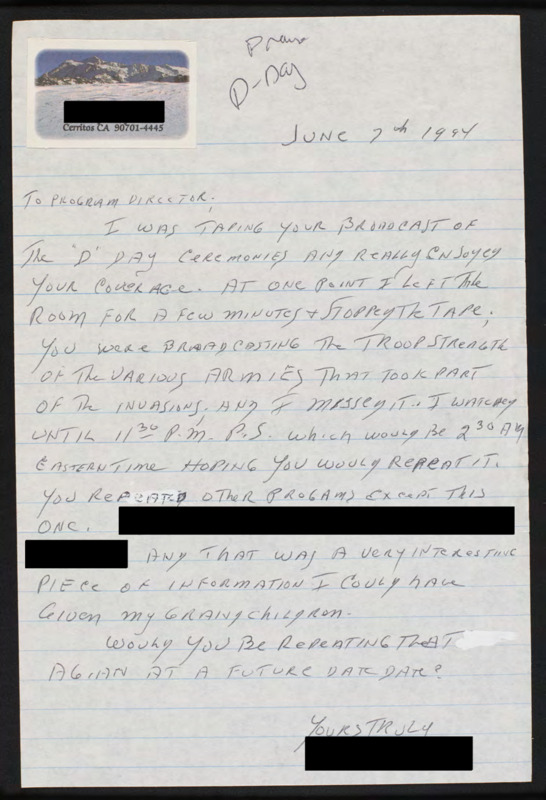 Praise
D-Day
Cerritos CA 90701-4445
JUNE 7th 1994
TO PROGRAM DIRECTOR;
I WAS TAPING YOUR BROADCAST OF
The 'D' DAY CEREMONIES AND REALLY ENJOYED
YOUR COVERAGE. AT ONE POINT I LEFT The
ROOM FOR A FEW MINUTES & STOPPED THE TAPE;
YOU WERE BROADCASTING The TROOP STRENGTH
OF The VARIOUS ARMIES THAT TOOK PART
OF The INVASIONS, AND I MISSED IT. I WATCHED
UNTIL 11 30 P.M. P.S. which would BE 2 30 AM
EASTERN TIME HOPING YOU WOULD REPEAT IT.
YOU REPEATED OTHER PROGAMS EXCEPT THIS
ONE.
AND THAT WAS A VERY INTERESTING
PIECE OF INFORMATION I COULD HAVE
GIVEN MY GRANDCHILDRON.
WOULD YOU BE REPEATING THAT
AGIAN AT A FUTURE DATE DATE?
YOURS TRULY